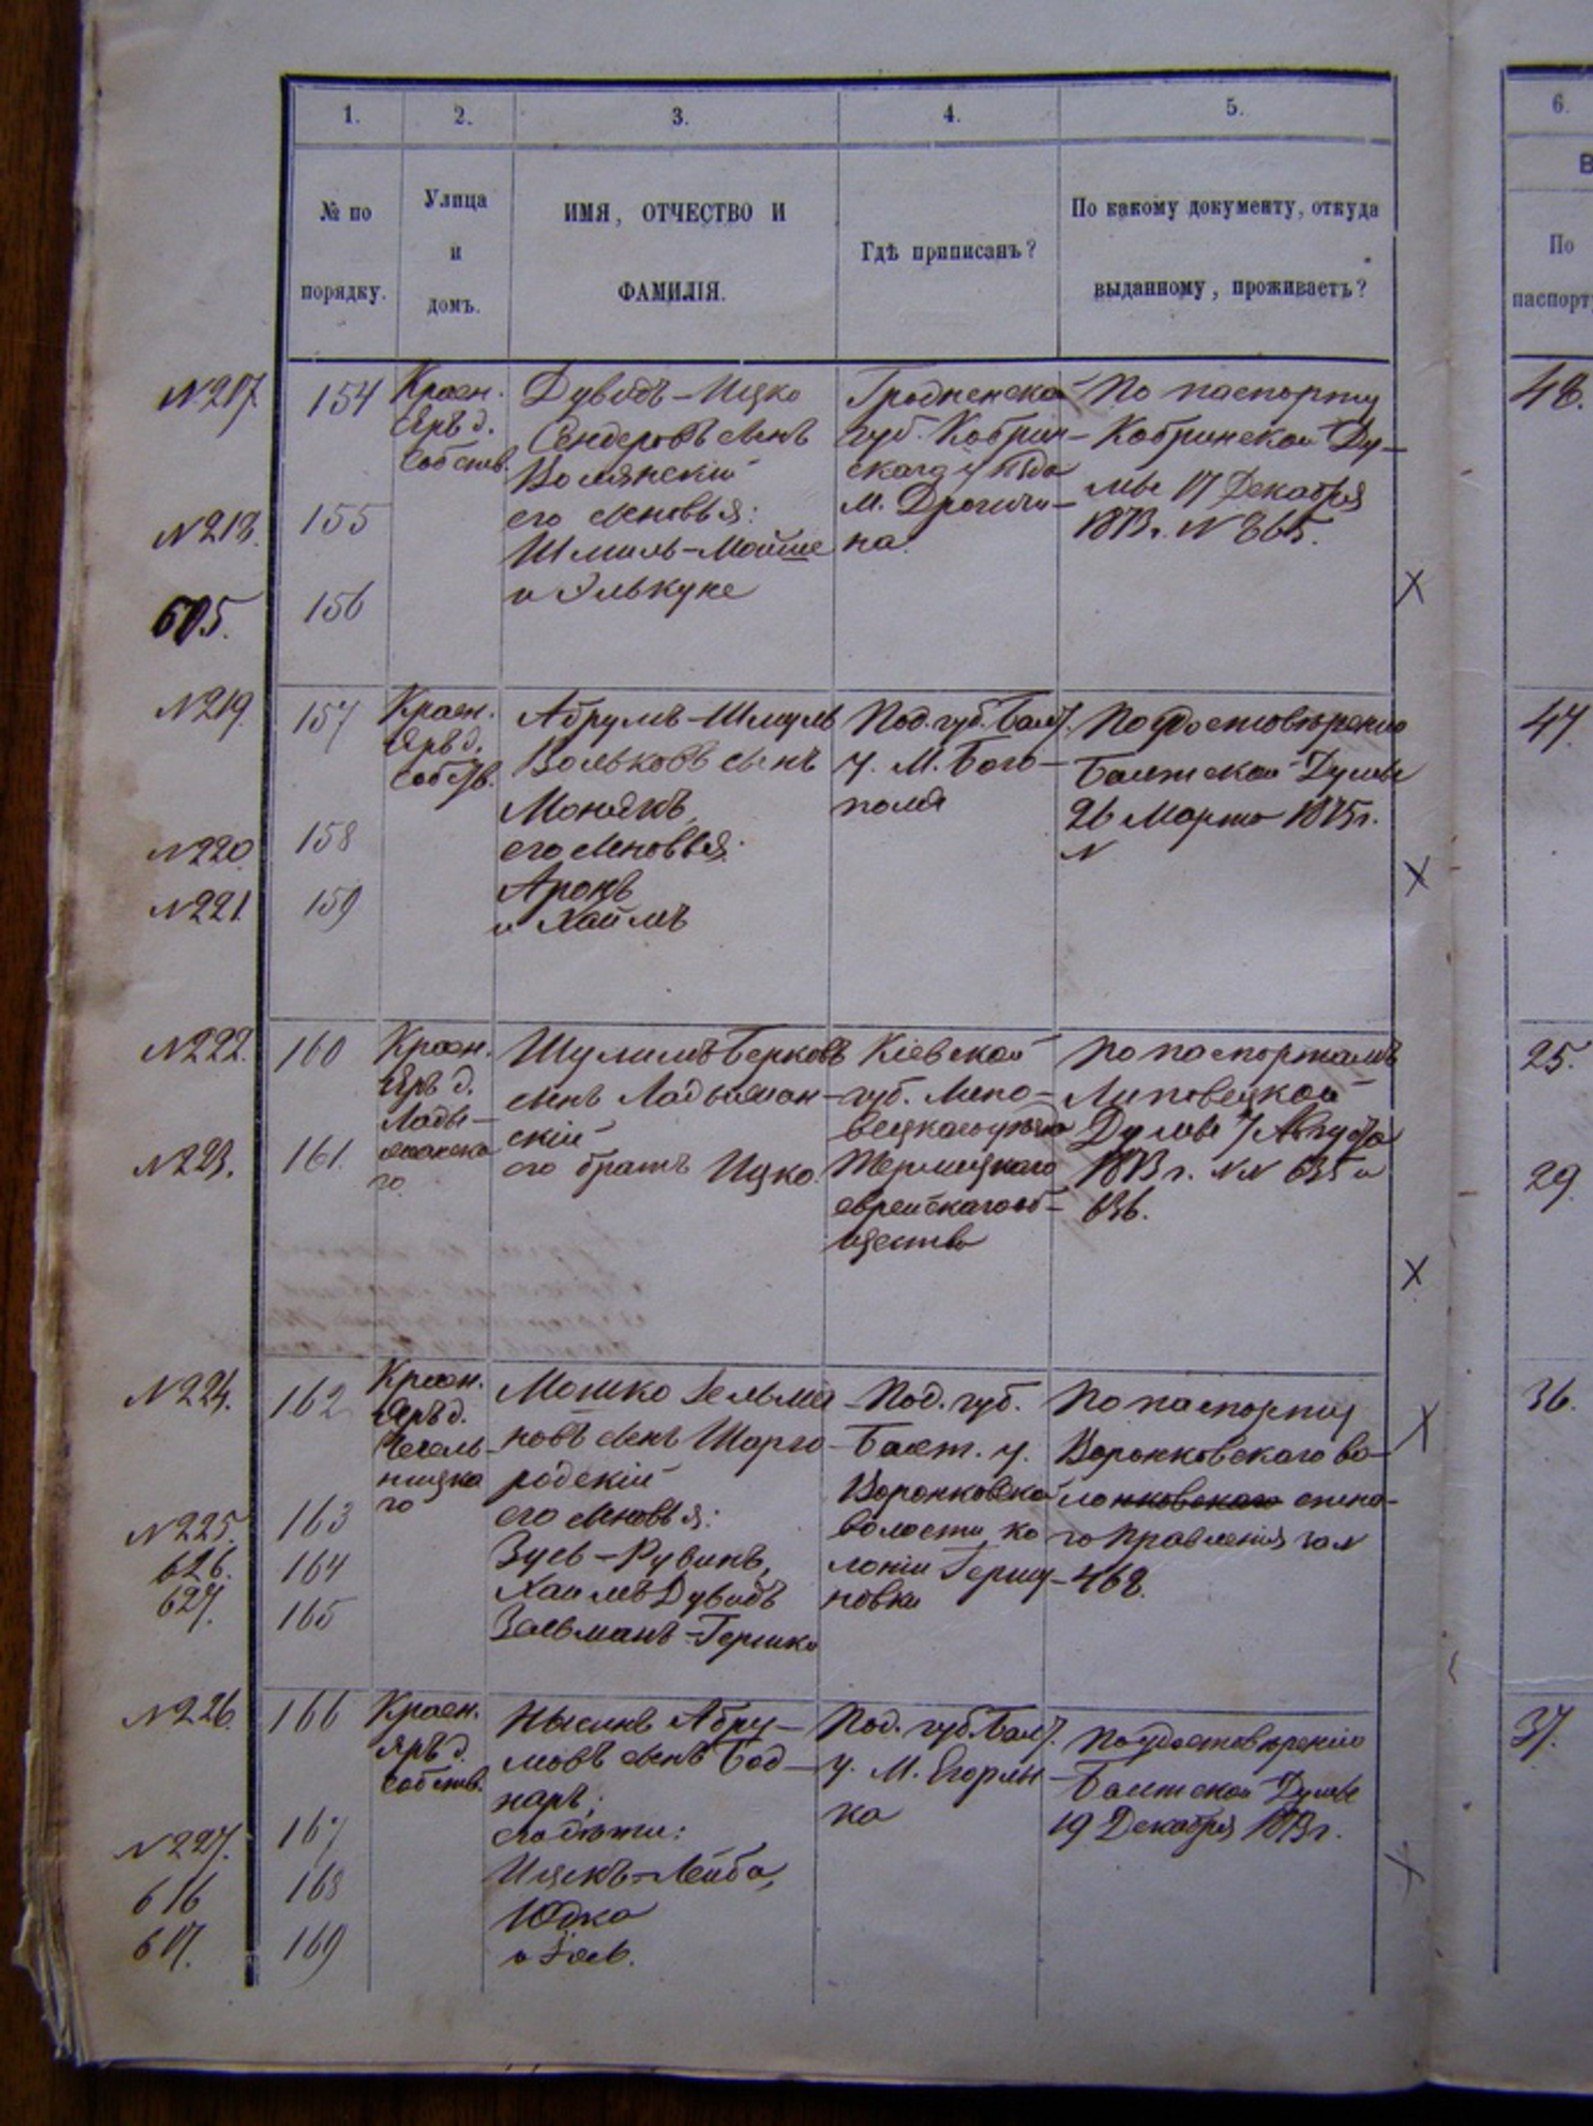 1.
2.
3.
4.
5.
6.
№ по
порядку.
Улица
и
домъ.
ИМЯ, ОТЧЕСТВО И
ФАМИЛІЯ.
Гдѣ приписанъ?
По какому документу, откуда
выданному, проживаетъ?
В
По
паспорт
№217.
154
Красн.
Яръ д.
собств.
Дувидъ-Ицко
Сендеровъ сынъ
Волянскій
его сыновья:
Шмиль-Мойше
и Элькуне
Гродненской
губ. Кобрин-
скаго уѣзда
м. Дрогичи-
на.
По паспорту
Кобринской Ду-
мы 17 Декабря
1873 г. № 865.
48.
№218.
155
605.
156
№219.
157
Красн.
Яръ д.
собств.
Абрумъ-Шмуль
Вольковъ сынъ
Монякъ,
его сыновья:
Аронъ
и Хаимъ
Под. губ. Балт.
у. м. Бого-
поля
По удостовѣренію
Балтской Думы
26 Марта 1875 г.
№
47.
№220
158
№221
159
№222.
160
Красн.
Яръ д.
Лады-
го.
Шулимъ Берковъ
сынъ Ладыжин-
скій
его братъ Ицко.
Кіевской
губ. Липо-
вецкаго уѣзда
еврейскаго об-
щества
По паспортамъ
Липовецкой
Думы 7 Августа
1873 г. №№ 635 и
636.
25.
№223.
161.
29.
№224.
162
Красн.
Яръ д.
Чечель-
ницка
го
Мошко Зельма
новъ сынъ Шарго-
родскій
его сыновья:
Зусь-Рувинъ,
Хаимъ Дувидъ
Зальманъ-Гершко
Под. губ.
Балт. у.
Воронковской
волости, ко
лоніи Гершу-
новки
По паспорту
Воронковскаго во-
го Правленія за №
468.
36.
№225.
163
626.
164
627.
165
№226.
166
Красн.
Яръ д.
собств.
Нысинъ Абру-
мовъ сынъ Бод-
наръ;
его дѣти:
Ицекъ-Лейба,
Юдко
Под. губ. Балт.
у. м. Егорлы-
ка
По удостовѣренію
Балтской Думы
19 Декабря 1873 г.
37.
№227.
167
616
168
617.
169